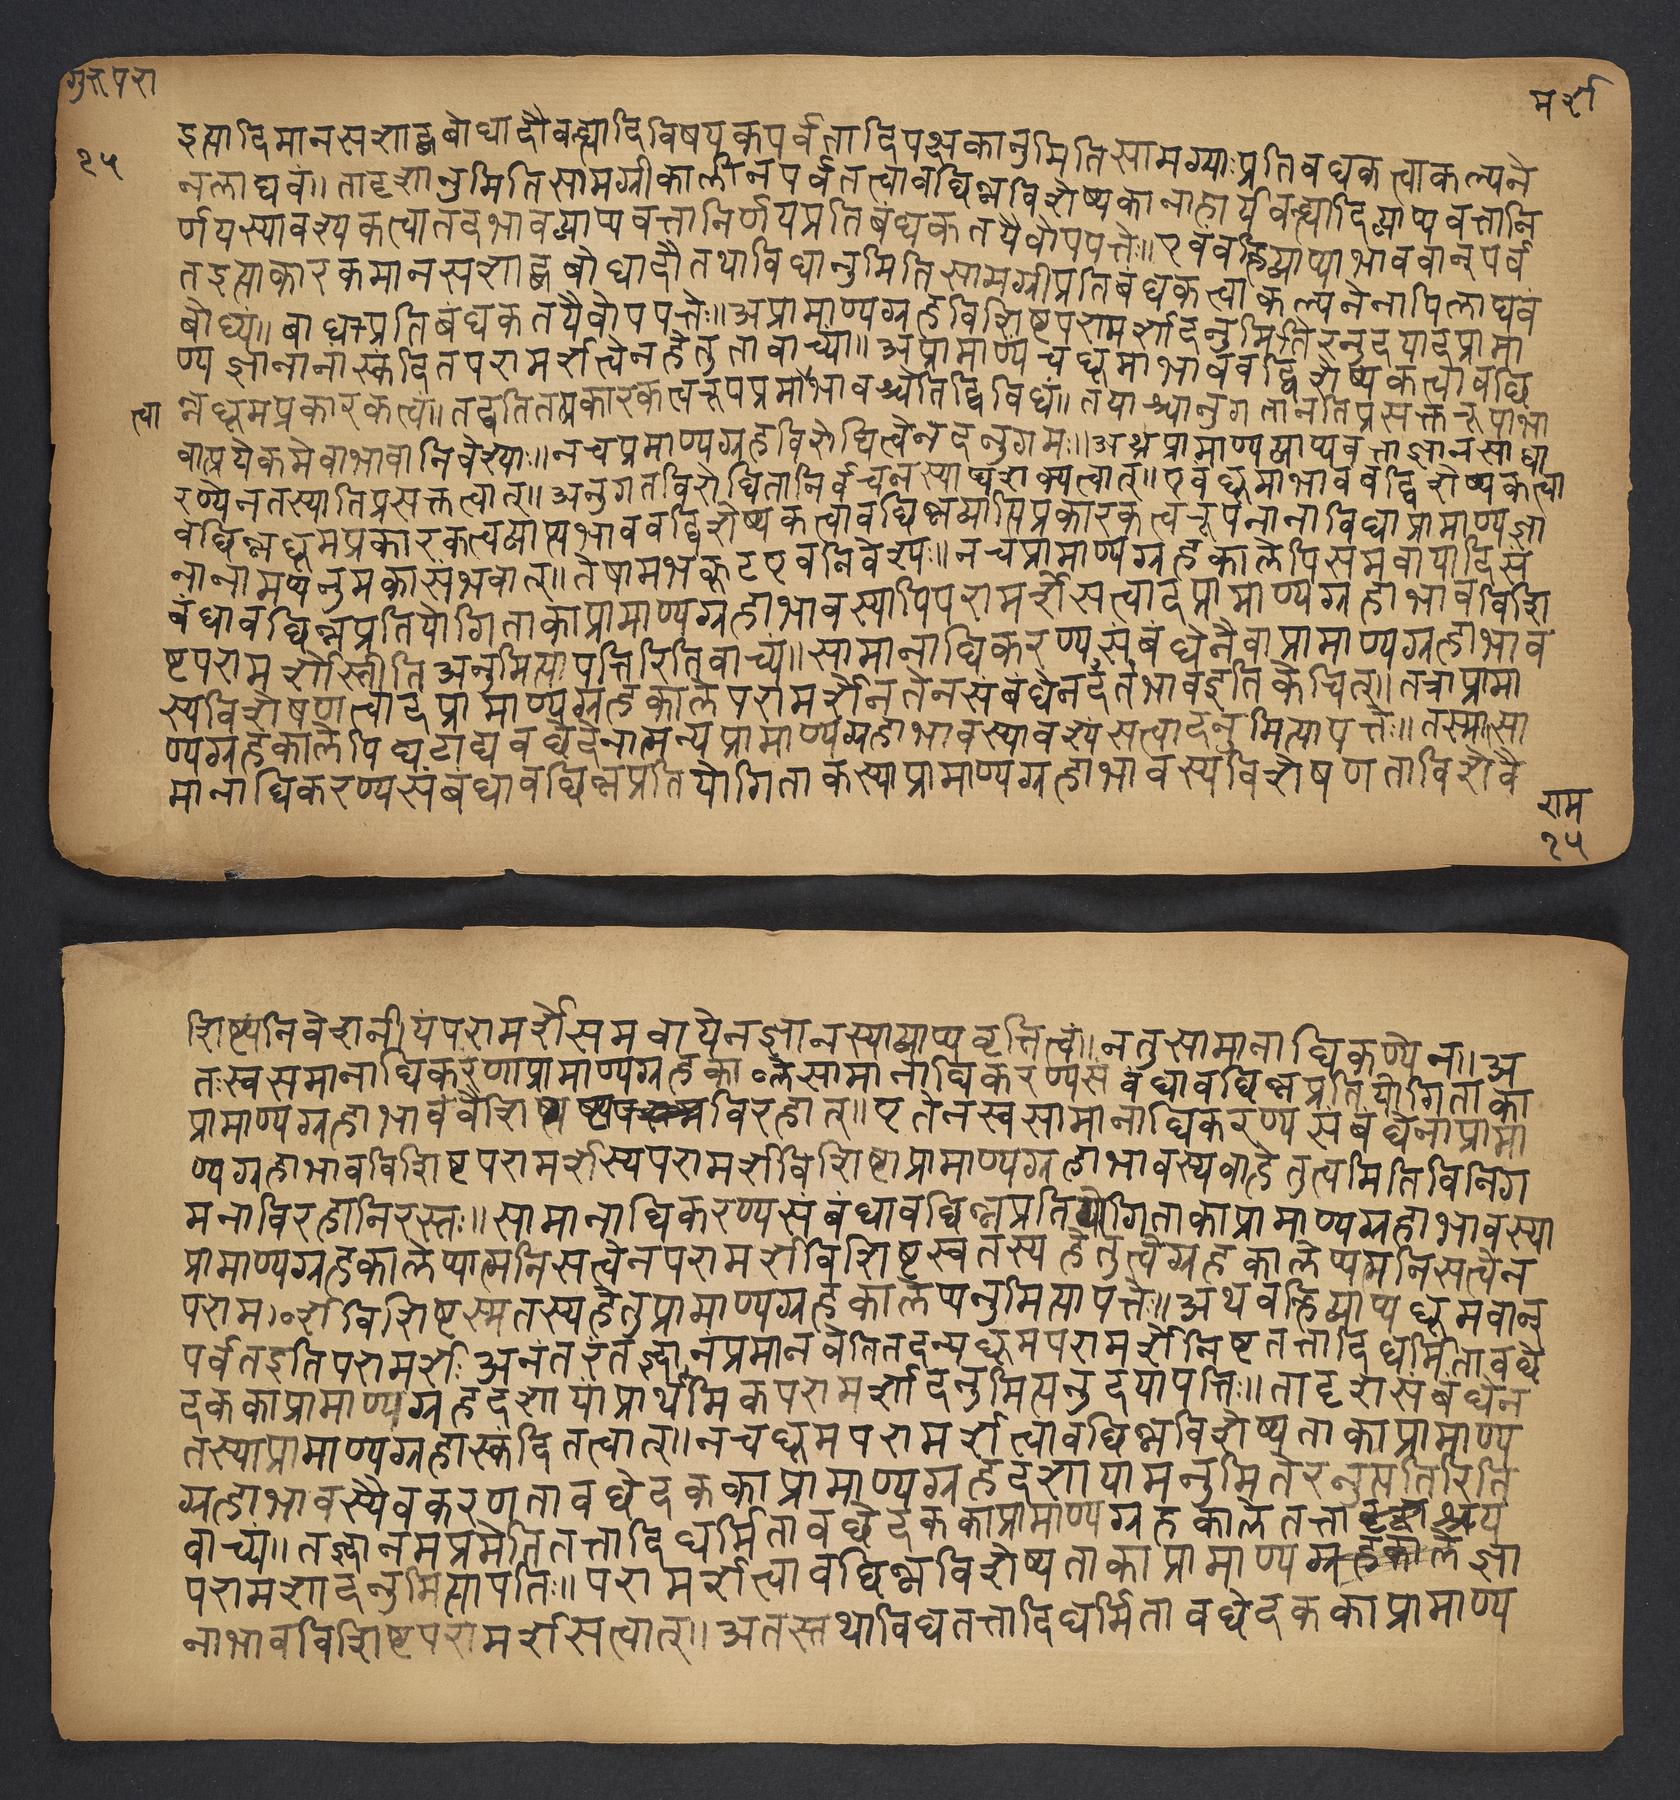 गुरुपरा
मर्श
२५
इत्यादिमानसशाब्दबोधादौवह्न्यादिविषयकपर्वतादिपक्षकानुमितिसामग्र्याःप्रतिबधकत्वाकल्पने
नलाघवं॥ तादृशानुमितिसामग्रीकालीनपर्वतत्वावछिन्नविशेष्यकानाहार्यवह्न्यादिव्याप्यवत्तानि
र्णयस्यावश्यकत्वातदभावव्याप्यवत्तानिर्णयप्रतिबंधकतयैवोपपत्तेः॥ एवंवह्निव्याप्याभाववान्पर्व
तइत्याकारकमानसशाब्दबोधादौतथाविधानुमितिसामग्रीप्रतिबंधकत्वाकल्पनेनापिलाघवं
बोध्यं॥ बाधप्रतिबंधकतयैवोपपत्तेः॥अप्रामाण्यग्रहविशिष्टपरामर्शादनुमितिरनुदयादप्रामा
ण्यज्ञानानास्कंदितपरामर्शत्वेनहेतुतावाच्या॥ अप्रामाण्यंचधूमाभाववद्विशेष्यकत्वावछि
त्वा
न्नधूमप्रकारकत्वं॥ तद्वतितत्प्रकारकत्वरूपप्रमाभावश्चेतिद्विविधं॥ तयोश्चानुगतानतिप्रसक्तरूपाभा
वात्प्रत्येकमेवाभावानिवेश्याः॥नचप्रमाण्यग्रहविरोधित्वेनदनुगमः॥अथप्रामाण्यव्याप्यवत्ताज्ञानसाधा
रण्येनतस्यातिप्रसक्तत्वात्॥ अनुगतविरोधितानिर्वचनस्याप्यशक्यत्वात्॥ एवंधूमाभाववद्विशेष्यकत्वा
वछिन्नधूमप्रकारकत्वव्याप्यभाववद्विशेष्यकत्वावछिन्नव्याप्तिप्रकारकत्वरूपनानाविधाप्रामाण्यज्ञा
नानामप्यनुमकासंभवात्॥ तेषामभकूटएवनिवेश्यः॥ नचप्रामाण्यग्रहकालेपिसमवायादिसं
बंधावछिन्नप्रतियोगिताकाप्रामाण्यग्रहाभावस्यापिपरामर्शेसत्वादप्रामाण्यग्रहाभावविशि
ष्टपरामर्शोस्तीति अनुमित्यापत्तिरितिवाच्यं॥ सामानाधिकरण्यसंबंधेनैवाप्रामाण्यग्रहाभाव
स्यविशेषणत्वादप्रामाण्यग्रहकालेपरामर्शेनतेनसंबंधेनदंतभावइतिकेचित्॥ तत्राप्रामा
ण्यग्रहकालेपिघटाद्यवछेदेनात्मन्यप्रामाण्यग्रहाभावस्यावश्यंसत्वादनुमित्यापत्तेः॥ तस्मात्सा
मानाधिकरण्यसंबंधावछिन्नप्रतियोगिताकस्याप्रामाण्यग्रहाभावस्यविशेषणताविशेवै
राम
२५
शिष्ट्यंनिवेशनीयंपरामर्शेसमवायेनज्ञानस्याव्याप्यवृत्तित्वं॥नतुसामानाधिकण्येन॥अ
तःस्वसमानाधिकरणाप्रामाण्यग्रहकालेसामानाधिकरण्यसंबंधावछिन्नप्रतियोगिताका
प्रामाण्यग्रहाभाववैशिष्ट्यविरहात्॥ एतेनस्वसामानाधिकरण्यसंबंधेनाप्रामा
ण्यग्रहाभावविशिष्टपरामर्शस्यपरामर्शविशिष्टाप्रामाण्यग्रहाभावस्यवाहेतुत्वमितिविनिग
मनाविरहोनिरस्तः॥ सामानाधिकरण्यसंबंधावछिन्नप्रतियोगिताकाप्रामाण्यग्रहाभावस्या
प्रामाण्यग्रहकालेप्यात्मनिसत्वेनपरामर्शविशिष्टस्वतस्यहेतुत्वेग्रहकालेप्यत्मनिसत्वेन
परामर्शविशिष्टस्मतस्यहेतुप्रामाण्यग्रहकालेप्यनुमित्यापत्तेः॥ अथवह्निव्याप्यधूमवान्
पर्वतइतिपरामर्शः अनंतरंतज्ज्ञानप्रमानवेतितदन्यधूमपरामर्शेनिष्टतत्तादिधर्मितावछे
दककाप्रामाण्यग्रहदशायांप्राथमिकपरामर्शादनुमित्यनुदयापत्तिः॥ तादृशसंबंधेन
तस्याप्रामाण्यग्रहास्कंदितत्वात्॥नचधूमपरामर्शत्वावछिन्नविशेष्यताकाप्रामाण्य
ग्रहाभावस्यैवकरणतावछेदककाप्रामाण्यग्रहदशायामनुमितेरनुत्पतिरिति
वाच्यं॥ तज्ज्ञानमप्रमेतितत्तादिधर्मितावछेदककाप्रामाण्यग्रहकालेतत्ताश्रय
परामर्शादनुमित्यापतिः॥ परामर्शत्वावछिन्नविशेष्यताकाप्रामाण्यग्रहकालेज्ञा
नाभावविशिष्टपरामर्शसत्वात्॥ अतस्तथाविधतत्तादिधर्मितावछेदककाप्रामाण्य